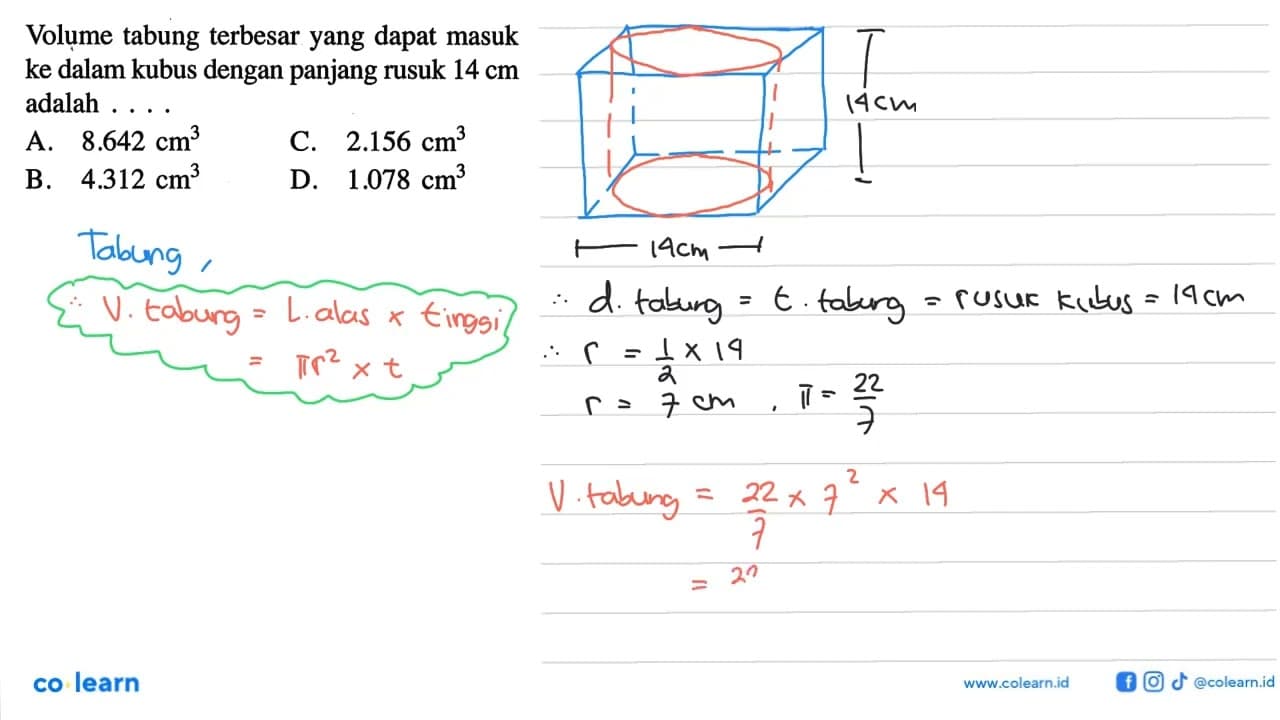 Volume tabung terbesar yang dapat masuk
ke dalam kubus dengan panjang rusuk 14 cm
adalah . . . .
A. 8.642 cm³ C. 2.156 cm³
B. 4.312 cm³ D. 1.078 cm³
Tabung,
∴ V. tabung = L. alas x tinggi
= πr² x t
14 cm
14 cm
∴ d. tabung = t. tabung = rusuk kubus = 14 cm
∴ r = 1/2 x 14
r = 7 cm , π = 22/7
V. tabung = 22/7 x 7² x 14
= 22
co learn
www.colearn.id
@colearn.id